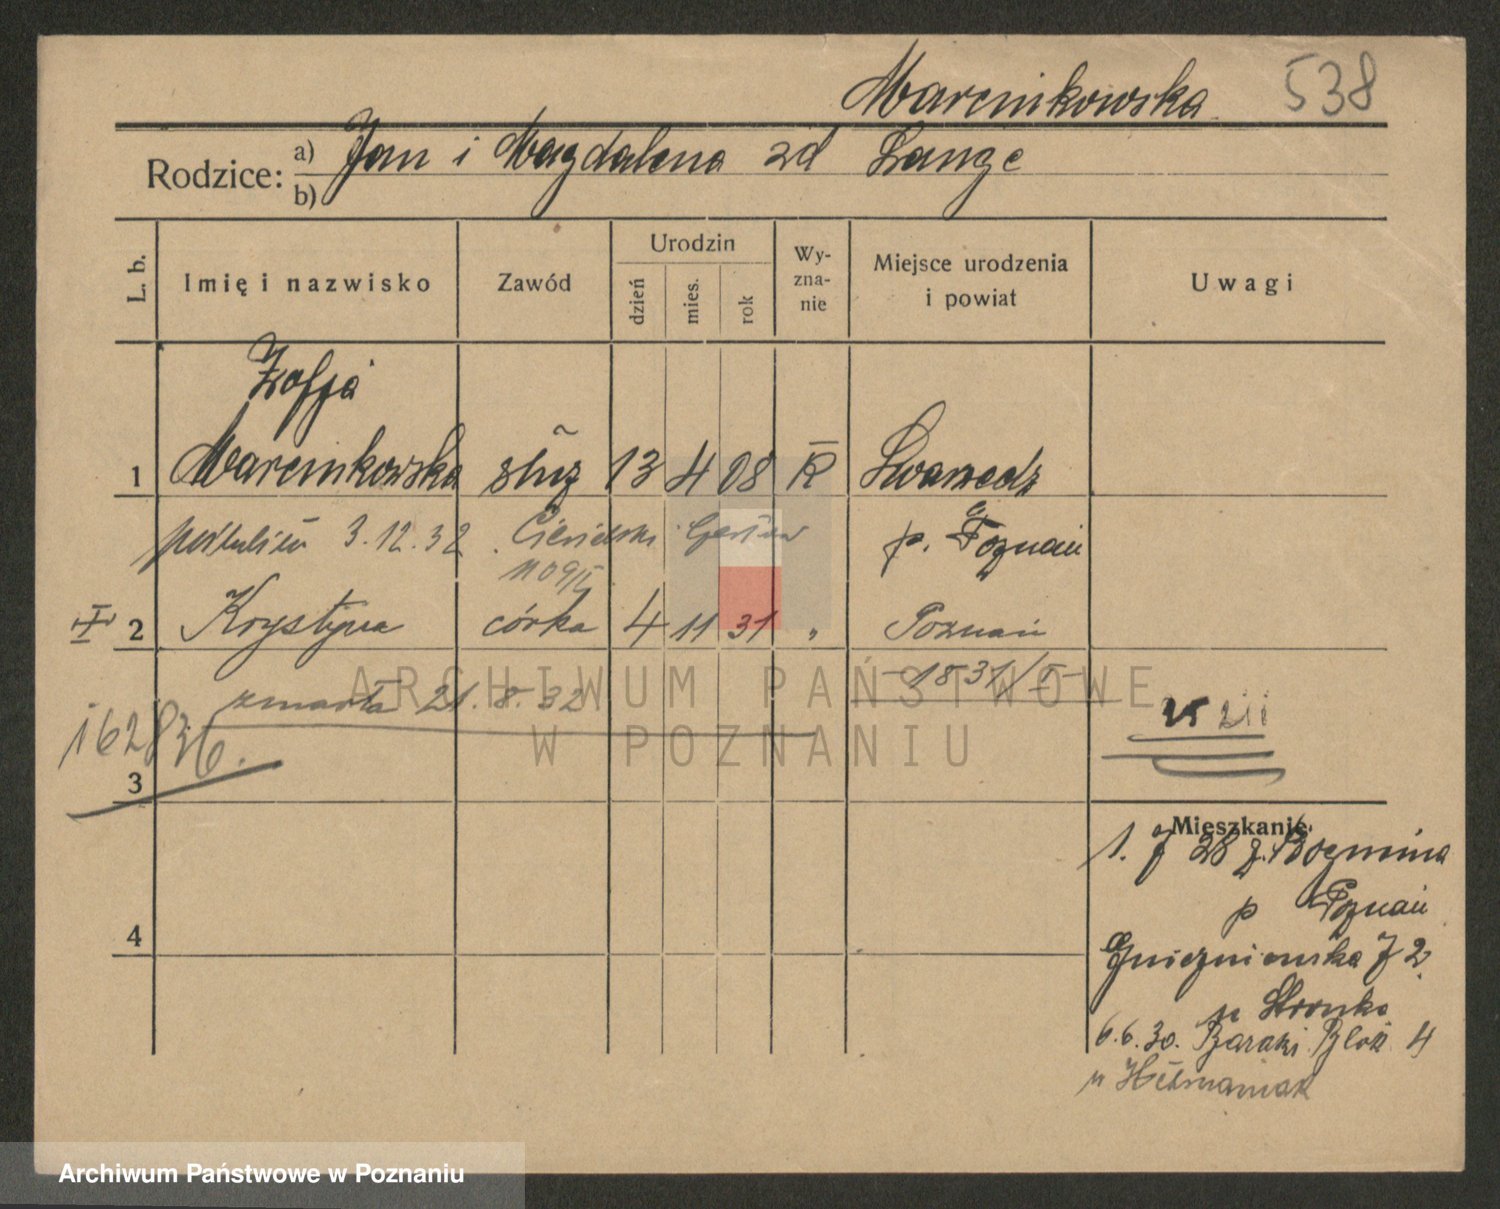 Marcinkowska 538
Rodzice: a) Jan i Magdalena zd Lange
b)
L. b. Imię i nazwisko Zawód Urodzin dzień mies. rok Wy-zna-nie Miejsce urodzenia i powiat Uwagi
Zofja
1 Marcinkowska służ 13 4 08 R Swarzędz
3.12.32 p. Poznań
1109/II
2 Krystyna córka 4 11 31 " Poznań
zmarła 21.8.32 1831/I
16283/6.
3
Mieszkanie:
1. 7 28 z.
p Poznań
4
Gnieźnieńska 7 2
u Słronka
6.6.30. Baraki Blok 4
u
ARCHIWUM PAŃSTWOWE
W POZNANIU
Archiwum Państwowe w Poznaniu